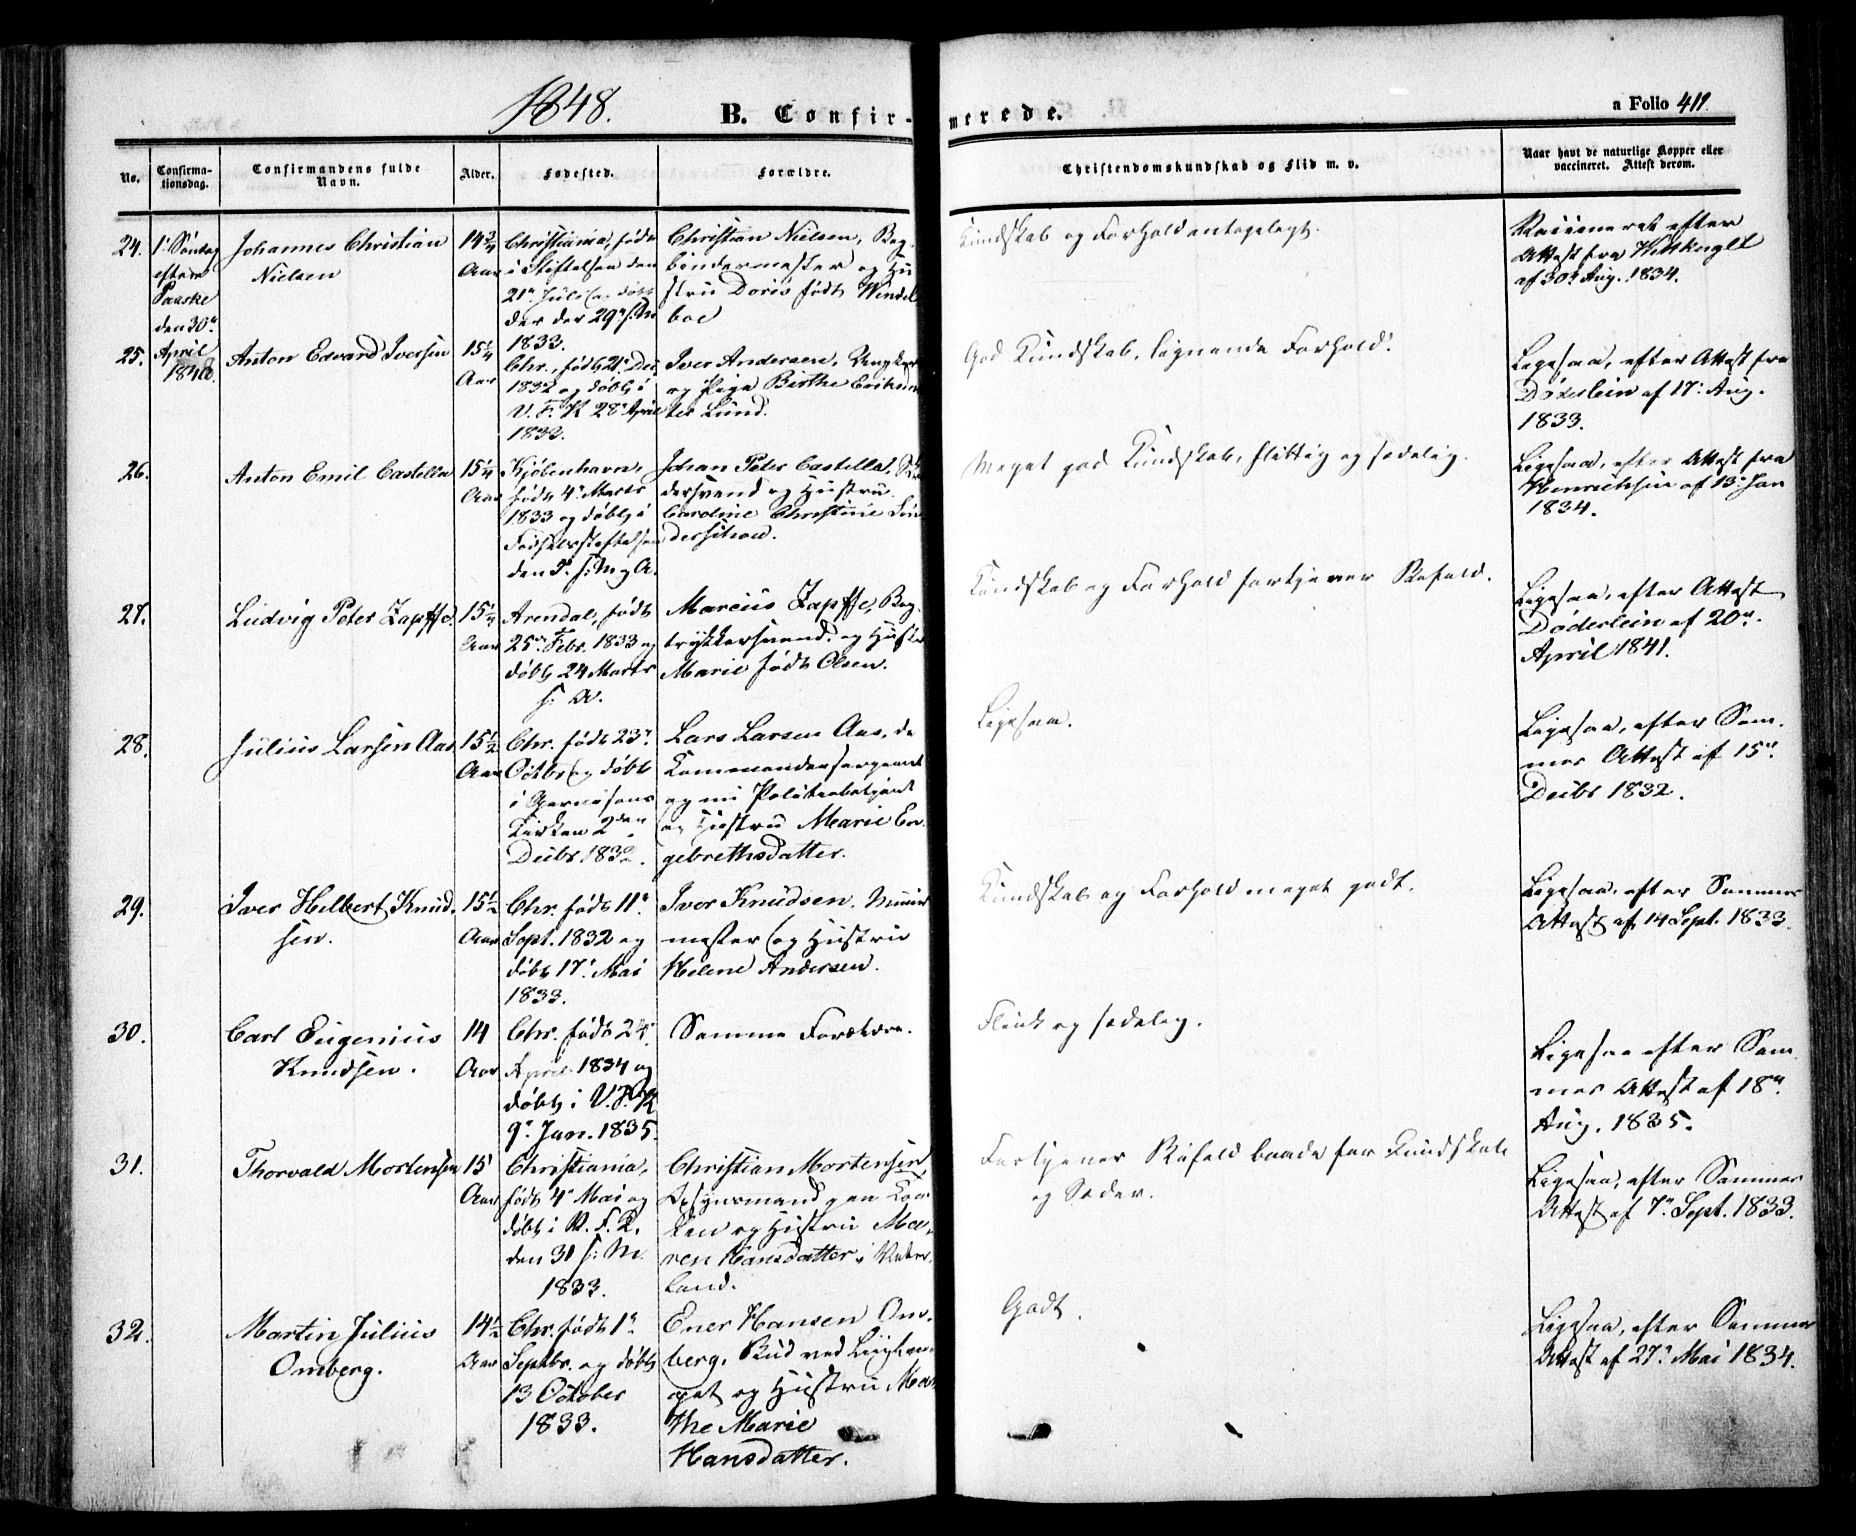 1848.
B. Confir-
merede.
a Folio 411.
No.
Confirma-
tionsdag.
Confirmandens fulde
Navn.
Alder.
Fødested.
Forældre.
Christendomskundskab og Flid m. v.
Naar havt de naturlige Kopper eller
vaccineret. Attest derom.
24.
1' Søndag
efter
Paaske
den 30te
April
1848.
Johannes Christian
Nielsen
14 3/4
Aar
Christiania, født
i Stiftelsen den
21' Juli og døbt
der den 29' s: M
1833.
Christian Nielsen, Bog-
bindermester og Hu
stru Doris født Windel
boe
Kundskab og Forhold antageligt.
Vaccineret efter
Attest fra Wittkugel
af 30' Aug. 1834.
25.
Anton Edvard Iversen
15 1/4
Aar
Chr., født 21' Dec
1832 og døbt i
V. F. K 28' April
1833.
Iver Andersen, Ungkarl
og Pige Birthe Eriksdat
ter Lund.
God Kundskab, lignende Forhold.
Ligesaa, efter Attest fra
Döderlein af 17' Aug.
1833.
26.
Anton Emil Castella
15 1/4
Aar
Kjøbenhavn,
født 4' Marts
1833 og døbt i
Fødselsstiftelsen
den 5' s: M og A.
Johan Peter Castella,
dersvend og Hustru
Caroline Christine
Meget god Kundskab, flittig og sædelig.
Ligesaa, efter Attest fra
Henrichsen af 13' Jan
1834.
27.
Ludvig Peter Zapffe.
15 1/4
Aar
Arendal, født
25de Febr. 1833 og
døbt 24 Marts
s. A.
Marcus Zapffe, Bog-
trykkersvend, og Hustru
Marie født Olsen.
Kundskab og Forhold fortjener Roes.
Ligesaa, efter Attest
Döderlein af 20de
April 1841.
28.
Julius Larsen Aas
15 1/2
Aar
Chr. født 23'
Octbr og døbt
i Garnisons
Kirken 2den
Decbr 1832.
Lars Larsen Aas, da
Kommandeersergeant
og nu Politiebetjent
og Hustru Marie En-
gebrethsdatter.
Ligesaa.
Ligesaa, efter Sam-
mes Attest af 15de
Decbr 1832.
29.
Iver Helbert Knud-
sen.
15 1/2
Aar
Chr. født 11'
Sept. 1832 og
døbt 17' Mai
1833.
Iver Knudsen, Muur
mester og Hustru
Helene Andersen.
Kundskab og Forhold meget godt.
Ligesaa, efter Sammes
Attest af 14 Sept. 1833.
30.
Carl Eugenius
Knudsen.
14
Aar
Chr. født 24'
April 1834 og
døbt i V. F. K
9' Jan. 1835.
Samme Forældre.
Flink og sædelig.
Ligesaa efter Sam-
mes Attest af 18de
Aug. 1835.
31.
Thorvald Mortensen
15
Aar
Christiania,
født 4' Mai og
døbt i V. F. K.
den 31 s: M.
1833.
Christian Mortensen,
Opsynsmand
og Hustru Ma-
ren Hansdatter
land.
Fortjener Roes baade for Kundskab
og Sæder.
Ligesaa, efter Sammes
Attest af 7' Sept. 1833.
32.
Martin Julius
Omberg.
14 1/2
Aar
Chr. født 1'
Septbr. og døbt
13 October
1833.
Ener Hansen Om-
berg, Bud ved
og Hustru Mar
the Marie
Hansdatter.
Godt.
Ligesaa, efter Sammes
Attest af 27' Mai 1834.